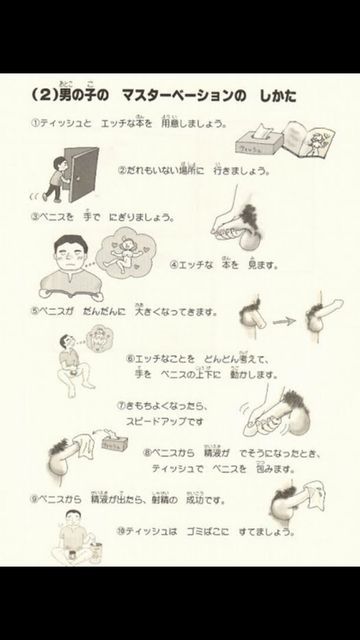 (2)男の子の マスターベーションの しかた
①ティッシュと エッチな本を 用意しましょう。
ティッシュ
②だれもいない場所に 行きましょう。
③ペニスを 手で にぎりましょう。
④エッチな 本を 見ます。
⑤ペニスが だんだんに 大きくなってきます。
⑥エッチなことを どんどん考えて、
手を ペニスの上下に 動かします。
⑦きもちよくなったら、
スピードアップです
⑧ペニスから 精液が でそうになったとき、
ティッシュで ペニスを 包みます。
⑨ペニスから 精液が出たら、射精の 成功です。
⑩ティッシュは ゴミばこに すてましょう。